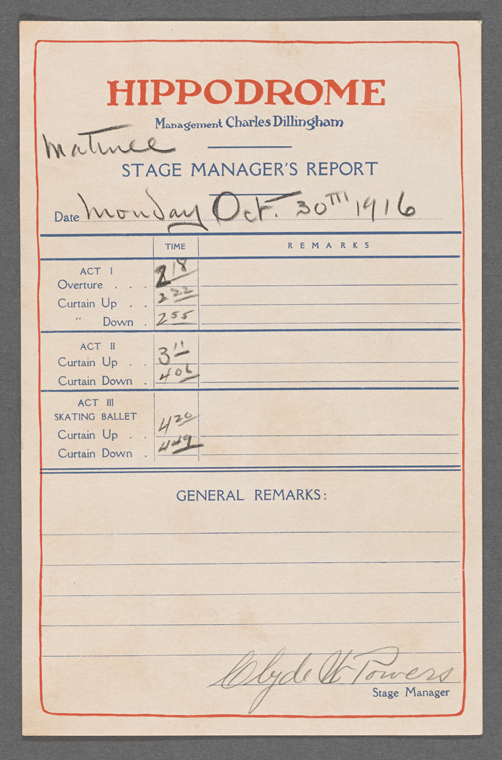 HIPPODROME
Management Charles Dillingham
Matinee
STAGE MANAGER'S REPORT
Date Monday Oct. 30TH 1916
TIME REMARKS
ACT I
Overture . . . 2 18
Curtain Up . . 2 22
" Down . 2 55
ACT II
Curtain Up . . 3 11
Curtain Down . 4 06
ACT III
SKATING BALLET
Curtain Up . . 4 20
Curtain Down . 4 49
GENERAL REMARKS:
Clyde W Powers
Stage Manager